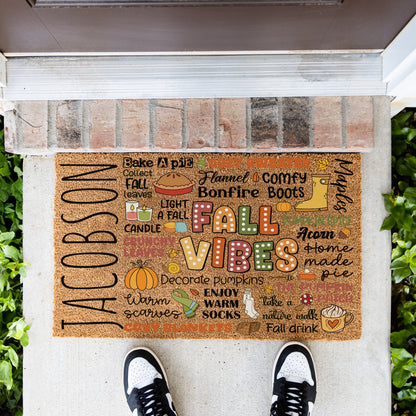 JACOBSON
Bake A piE
Collect
FALL
leaves
Flannel
COMFY
Bonfire BOOTS
Maples
LIGHT
A FALL
CANDLE
FALL
VIBES
Acorn
Home
made
pie
Decorate pumpkins
Warm
scarves
ENJOY
WARM
SOCKS
take a
nature walk
COZY BLANKETS
Fall drink